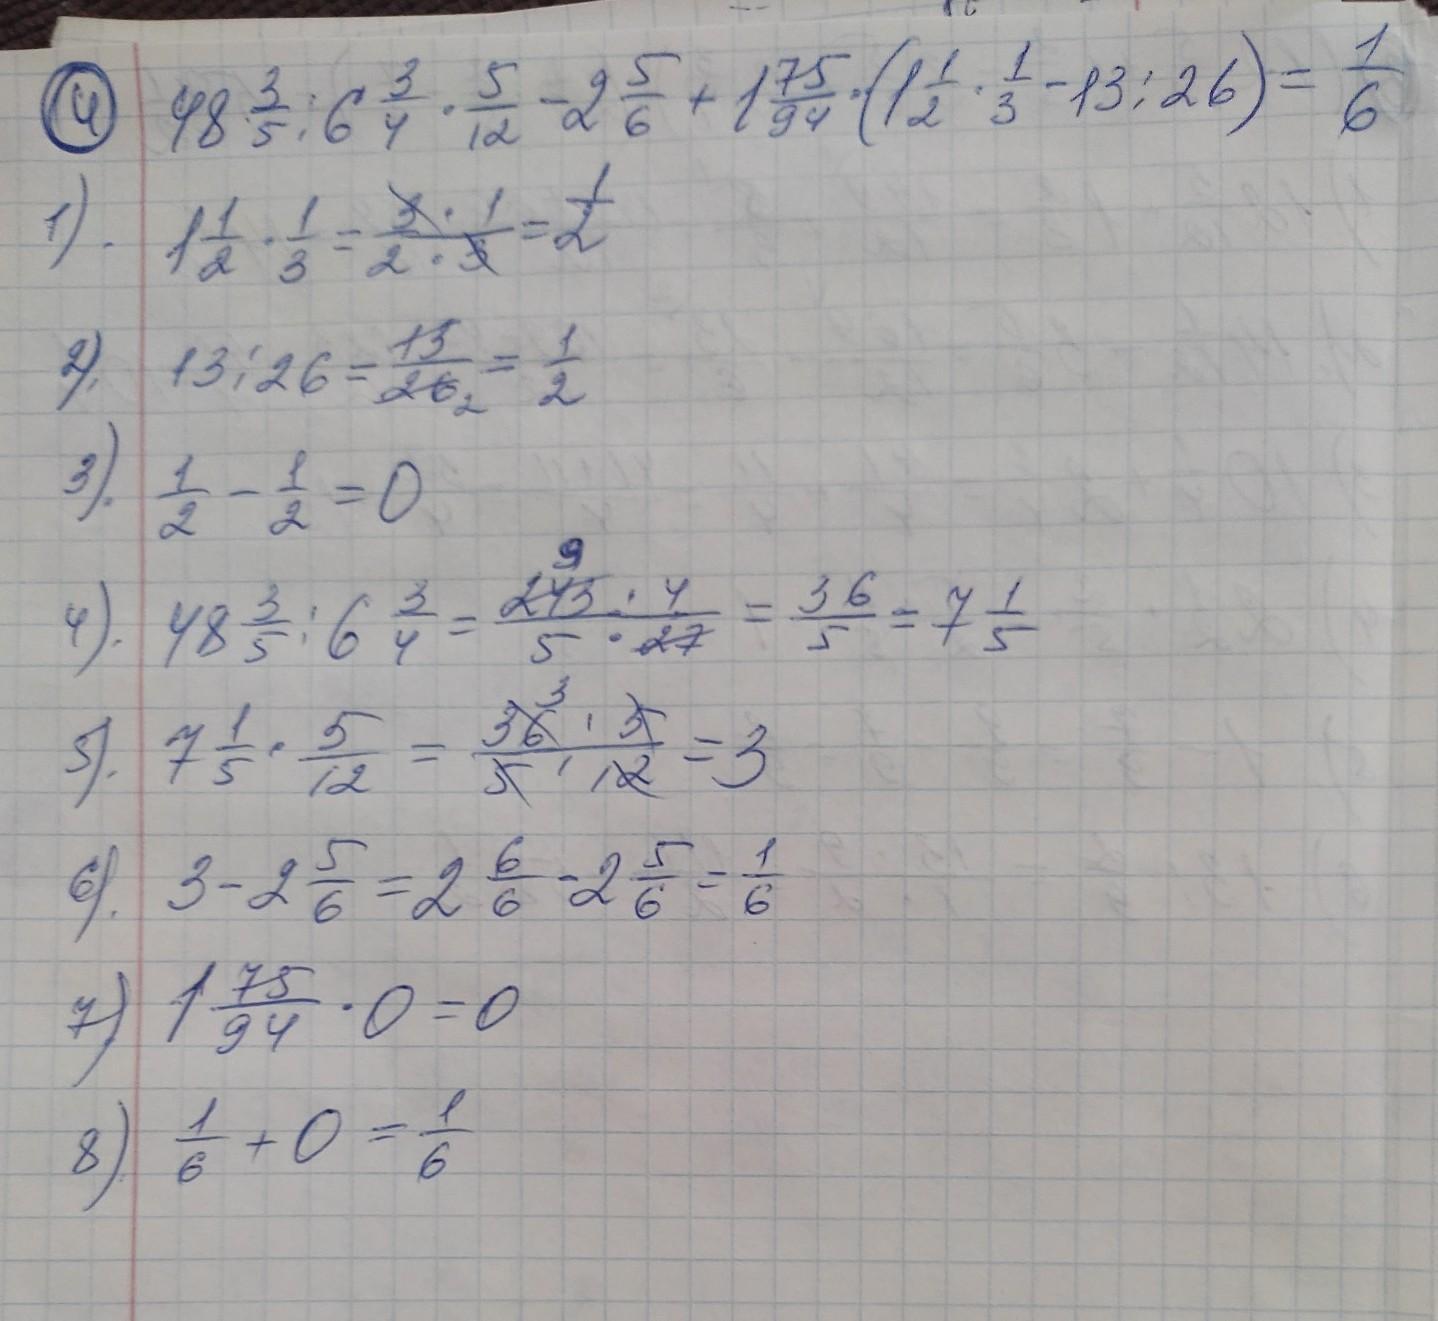 4 48 3/5 : 6 3/4 · 5/12 - 2 5/6 + 1 75/94 · (1 1/2 · 1/3 - 13 : 26) = 1/6
1). 1 1/2 · 1/3 = 3 · 1 / 2 · 3 = 1/2
2). 13 : 26 = 13/26 2 = 1/2
3). 1/2 - 1/2 = 0
4). 48 3/5 : 6 3/4 = 243 9 · 4 / 5 · 27 = 36/5 = 7 1/5
5). 7 1/5 · 5/12 = 36 3 · 5 / 5 · 12 = 3
6). 3 - 2 5/6 = 2 6/6 - 2 5/6 = 1/6
7) 1 75/94 · 0 = 0
8) 1/6 + 0 = 1/6